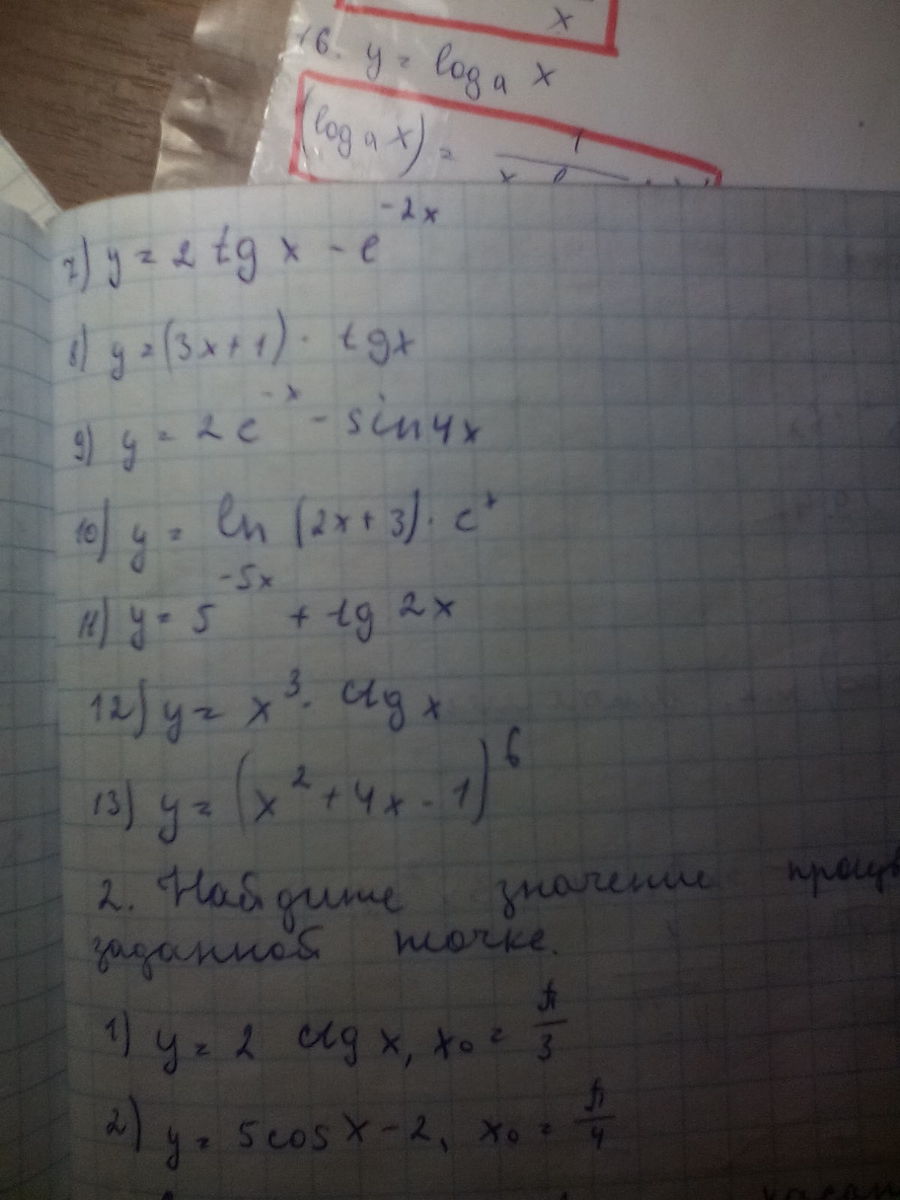 x
16. y = log a x
(log a x) = 1
7) y = 2 tg x - e^-2x
8) y = (3x+1) · tgx
9) y = 2e^-x - sin4x
10) y = ln (2x+3) · e^x
11) y = 5^-5x + tg 2x
12) y = x^3 · ctg x
13) y = (x^2 + 4x - 1)^6
2. Найдите значение
заданной точке.
1) y = 2 ctg x, x0 = π/3
2) y = 5cosx-2, x0 = π/4